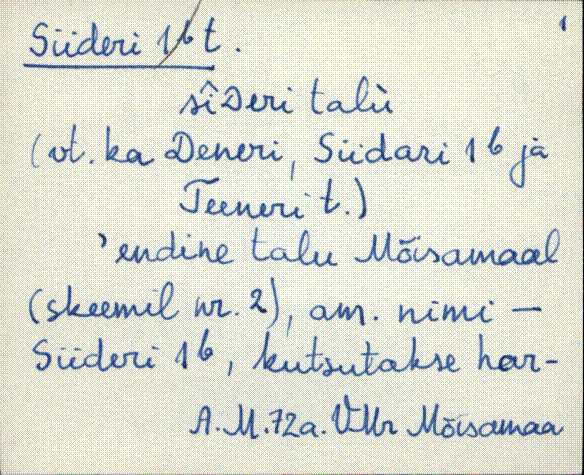 1
Siideri 16 t.
sîDeri talù
(vt. ka Deneri, Siidari 16 ja
Teeneri t.)
'endine talu Mõisamaal
(skeemil nr. 2), am. nimi —
Siideri 16, kutsutakse har-
A. M. 72a. VMr Mõisamaa